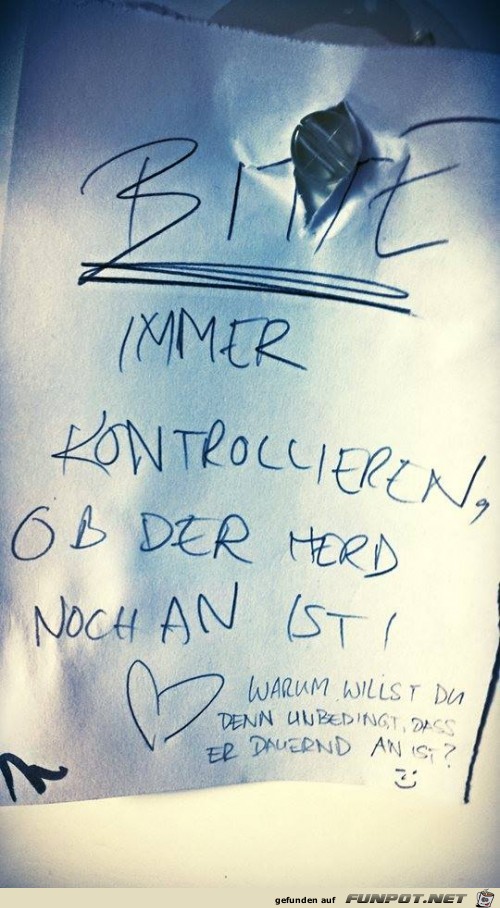 BITTE
IMMER
KONTROLLIEREN,
OB DER HERD
NOCH AN IST!
WARUM WILLST DU
DENN UNBEDINGT, DASS
ER DAUERND AN IST?
gefunden auf FUNPOT.NET